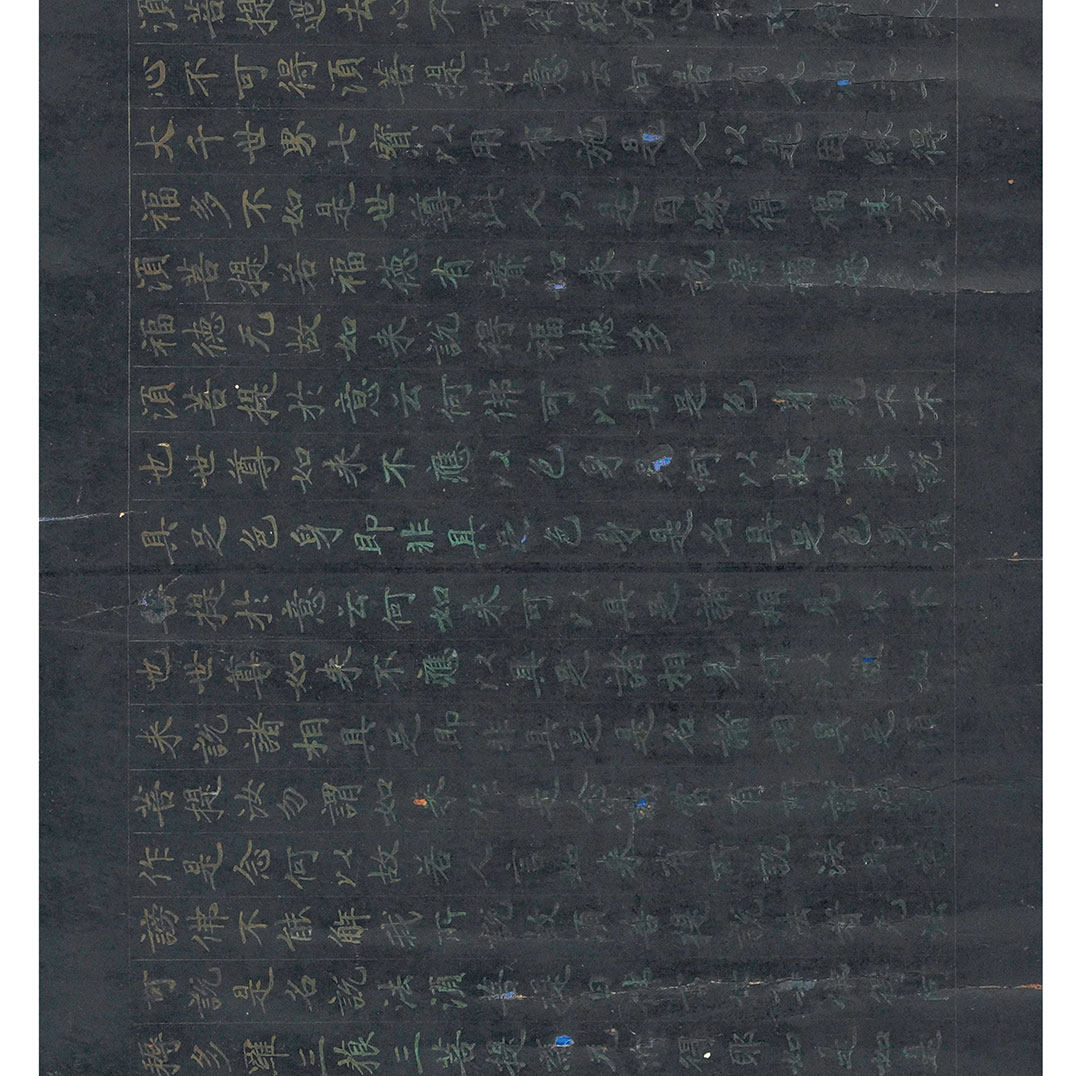 須菩提過去心不可得現在心不可得未来
心不可得須菩提於意云何若有人滿三
大千世界七寶以用布施是人以是因緣得
福多不如是世尊此人以是因緣得福甚多
須菩提若福德有實如来不說得福德多以
福德无故如来說得福德多
須菩提於意云何佛可以具足色身見不不
也世尊如来不應以色身見何以故如来說
具足色身即非具足色身是名具足色身須
菩提於意云何如来可以具足諸相見不不
也世尊如来不應以具足諸相見何以故如
来說諸相具足即非具足是名諸相具足須
菩提汝勿謂如来作是念我當有所說法莫
作是念何以故若人言如来有所說法即為
謗佛不能解我所說故須菩提說法者无法
可說是名說法須菩提白佛言世尊佛得阿
耨多羅三藐三菩提為无所得耶如是如是